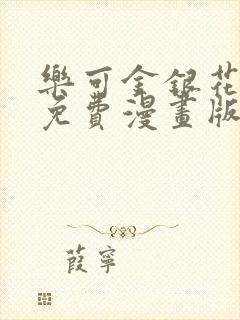 樂可金銀花
免費漫畫版
葭寧